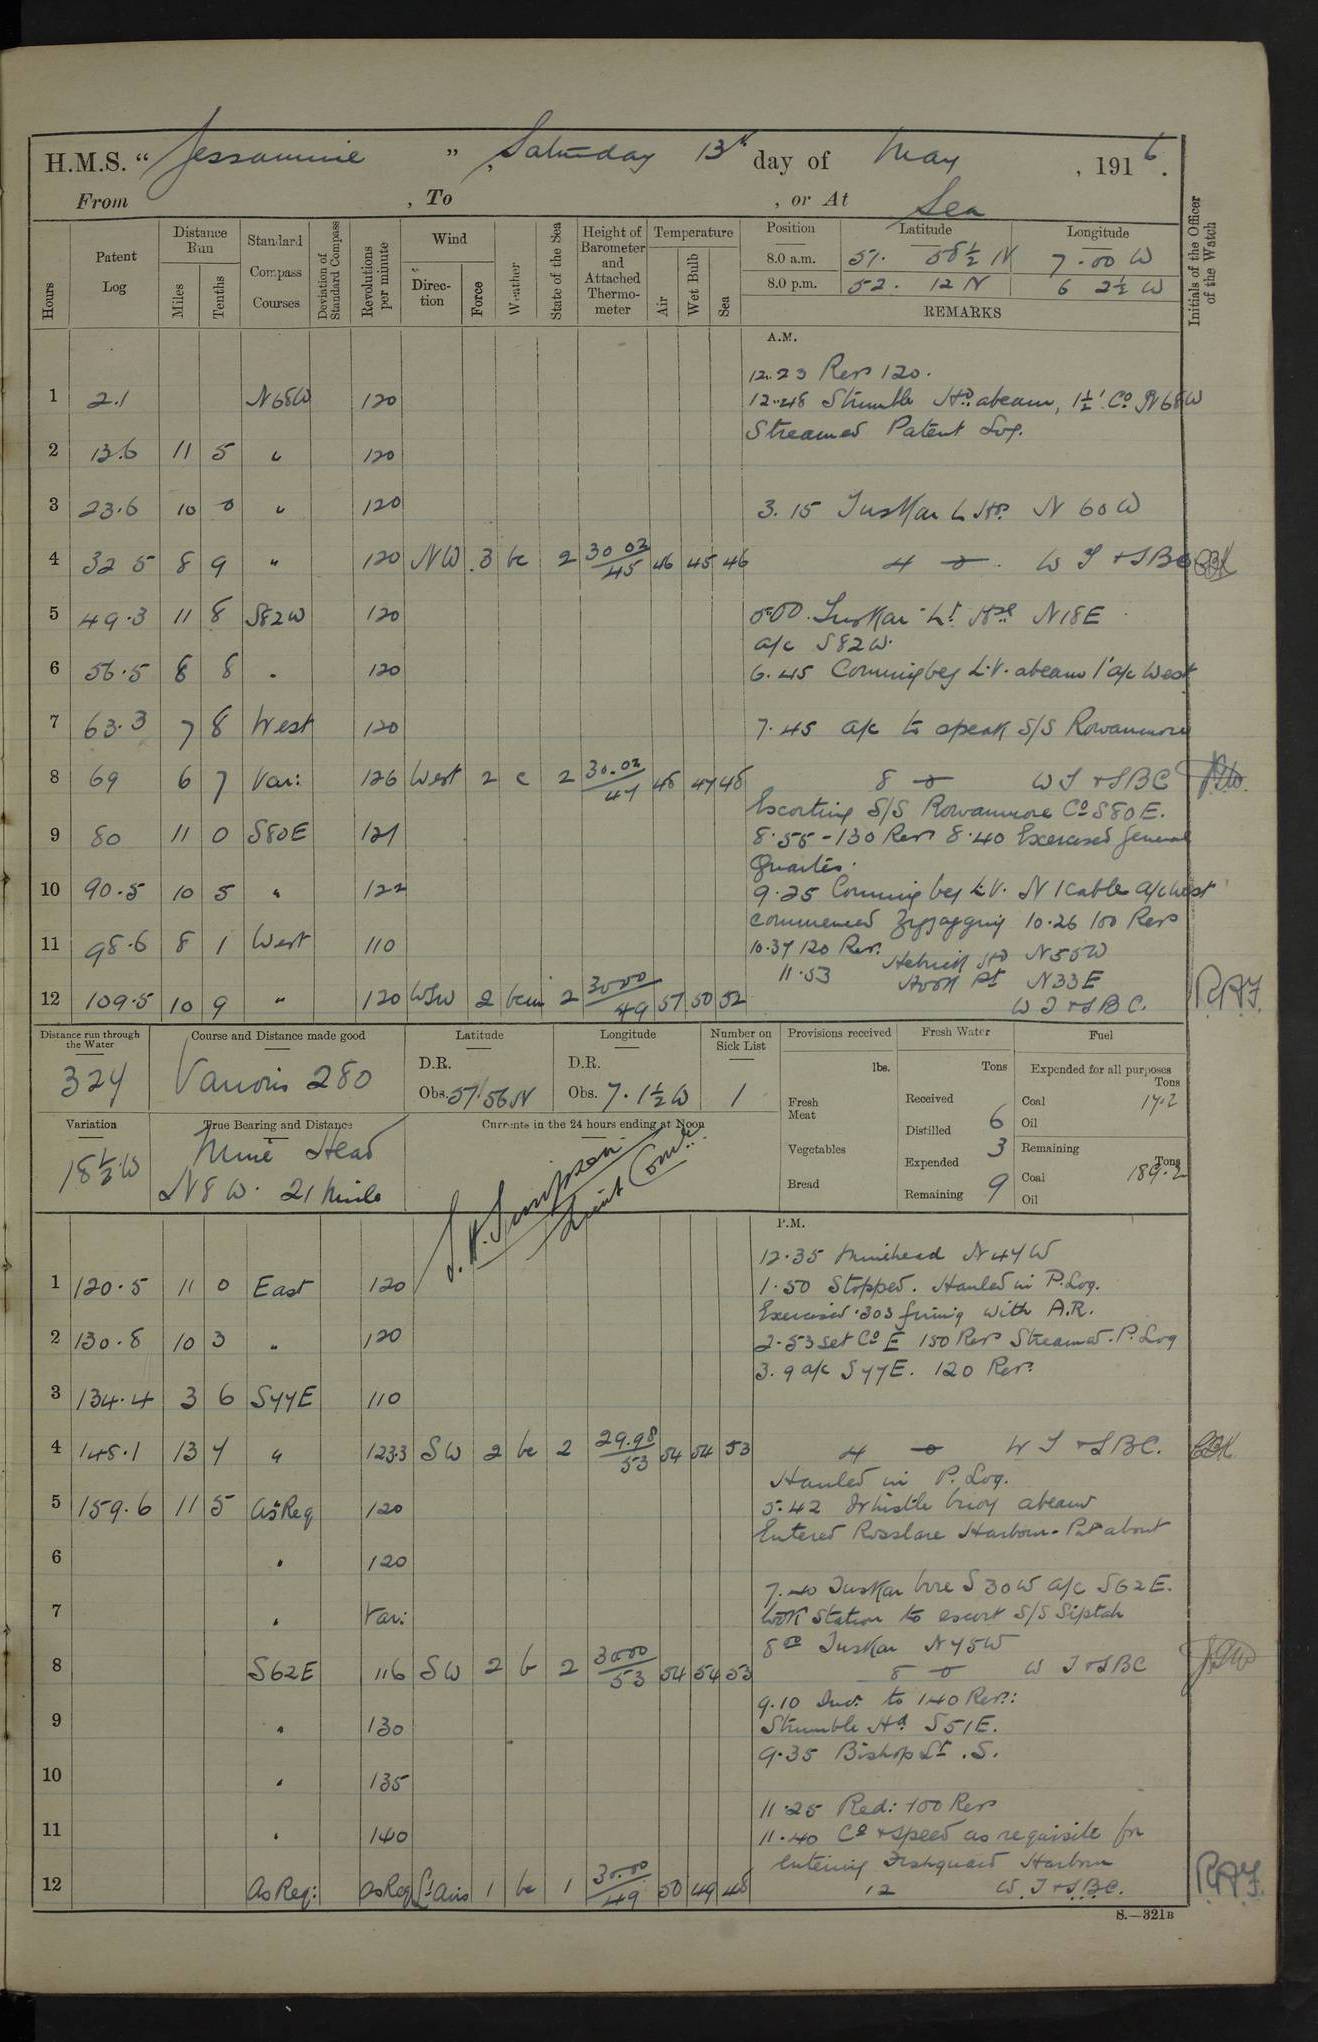 H.M.S. " Jessamine " , Saturday 13th day of May , 1916 .
From , To , or At Sea
Hours
Patent Log
Distance Run
Miles
Tenths
Standard Compass Courses
Deviation of Standard Compass
Revolutions per minute
Wind
Direction
Force
Weather
State of the Sea
Height of Barometer and Attached Thermometer
Temperature
Air
Wet Bulb
Sea
Position Latitude Longitude
8.0 a.m. 51. 58½ N 7.00 W
8.0 p.m. 52. 12 N 6 2½ W
REMARKS
Initials of the Officer of the Watch
A.M.
12.23 Revs 120.
1 2.1 N68W 120
12.48 Strumble Hd. abeam, 1½' Co. N68W
Streamed Patent Log.
2 13.6 11 5 " 120
3 23.6 10 0 " 120 3.15 Tuskar L Ho. N 60 W
4 32 5 8 9 " 120 NW 3 bc 2 30 02/45 46 45 46 4 0 W T & SBC
5 49.3 11 8 S82W 120 5.00 Tuskar Lt. Hse N18E
a/c S82W.
6 56.5 8 8 " 120 6.45 Conningbeg L.V. abeam 1' a/c West
7 63.3 7 8 West 120 7.45 a/c to speak S/S Rowanmore
8 69 6 7 Var: 126 West 2 c 2 30.02/47 48 47 48 8 0 W T & SBC
Escorting S/S Rowanmore Co S80E.
9 80 11 0 S80E 121 8.55 - 130 Revs 8.40 Exercised General
Quarters.
10 90.5 10 5 " 122 9.25 Conningbeg L.V. N 1 cable a/c West
commenced zigzagging 10.26 100 Revs
11 98.6 8 1 West 110 10.37 120 Rev.
11.53 Hd N55W
Hook Pt N33E
12 109.5 10 9 " 120 WSW 2 bcm 2 3000/49 51 50 52 W T & SBC. RAF.
Distance run through the Water
324
Course and Distance made good
Various 280
Latitude
D.R.
Obs. 51.56 N
Longitude
D.R.
Obs. 7.1½ W
Number on Sick List
1
Provisions received
lbs.
Fresh Meat
Vegetables
Bread
Fresh Water
Tons
Received
Distilled 6
Expended 3
Remaining 9
Fuel
Expended for all purposes
Tons
Coal 17.2
Oil
Remaining
Tons
Coal 189.2
Oil
Variation
18½ W
True Bearing and Distance
Mine Head
N8W. 21 Miles
Currents in the 24 hours ending at Noon
S.A. Simpson
Lieut Comdr.
P.M.
12.35 Minehead N47W
1 120.5 11 0 East 120 1.50 Stopped. Hauled in P.Log.
Exercised .303 firing with A.R.
2 130.8 10 3 " 120 2.53 set Co E 150 Revs Streamed P.Log
3.9 a/c S77E. 120 Revs.
3 134.4 3 6 S77E 110
4 148.1 13 7 " 123.3 SW 2 bc 2 29.98/53 54 54 53 4 0 W T & SBC.
Hauled in P. Log.
5 159.6 11 5 As Req 120 5.42 Whistle buoy abeam
Entered Rosslare Harbour. Put about
6 " 120
7.40 Tuskar bore S30W a/c S62E.
7 " Var: took station to escort S/S Siptah
8.00 Tuskar N75W
8 S62E 116 SW 2 b 2 3000/53 54 54 53 8 0 W T & SBC
9.10 Incr. to 140 Revs:
9 " 130 Strumble Hd S51E.
9.35 Bishop Lt. S.
10 " 135
11.25 Red: 100 Revs
11 " 140 11.40 Co & speed as requisite for
entering Fishguard Harbour
12 As Req: As Req Lt Airs 1 bc 1 30.00/49 50 49 48 12 W.T & SBC. RAF.
S.—321B